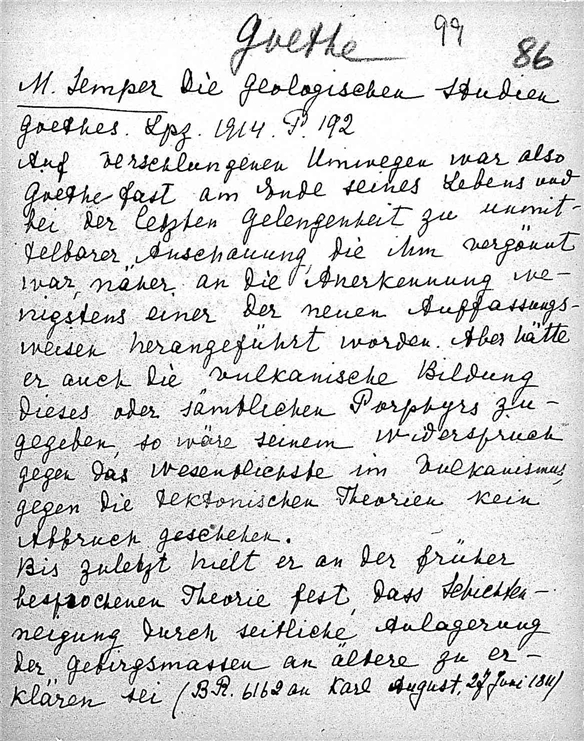 Goethe 99 86
M. Semper Die geologischen Studien
Goethes. Lpz. 1914. P. 192
Auf verschlungenen Umwegen war also
Goethe fast am Ende seines Lebens und
bei der letzten Gelengenheit zu unmit-
telbarer Anschauung, die ihm vergönnt
war, näher an die Anerkennung we-
nigstens einer der neuen Auffassungs-
weisen herangeführt worden. Aber hätte
er auch die vulkanische Bildung
dieses oder sämtlichen Porphyrs zu-
gegeben, so wäre seinem Widerspruch
gegen das Wesentlichste im Vulkanismus,
gegen die tektonischen Theorien kein
Abbruch geschehen.
Bis zuletzt hielt er an der früher
besprochenen Theorie fest, dass Schichten-
neigung durch seitliche Anlagerung
der Gebirgsmassen an ältere zu er-
klären sei (BR. 6162 an Karl August, 27 Juni 1811)